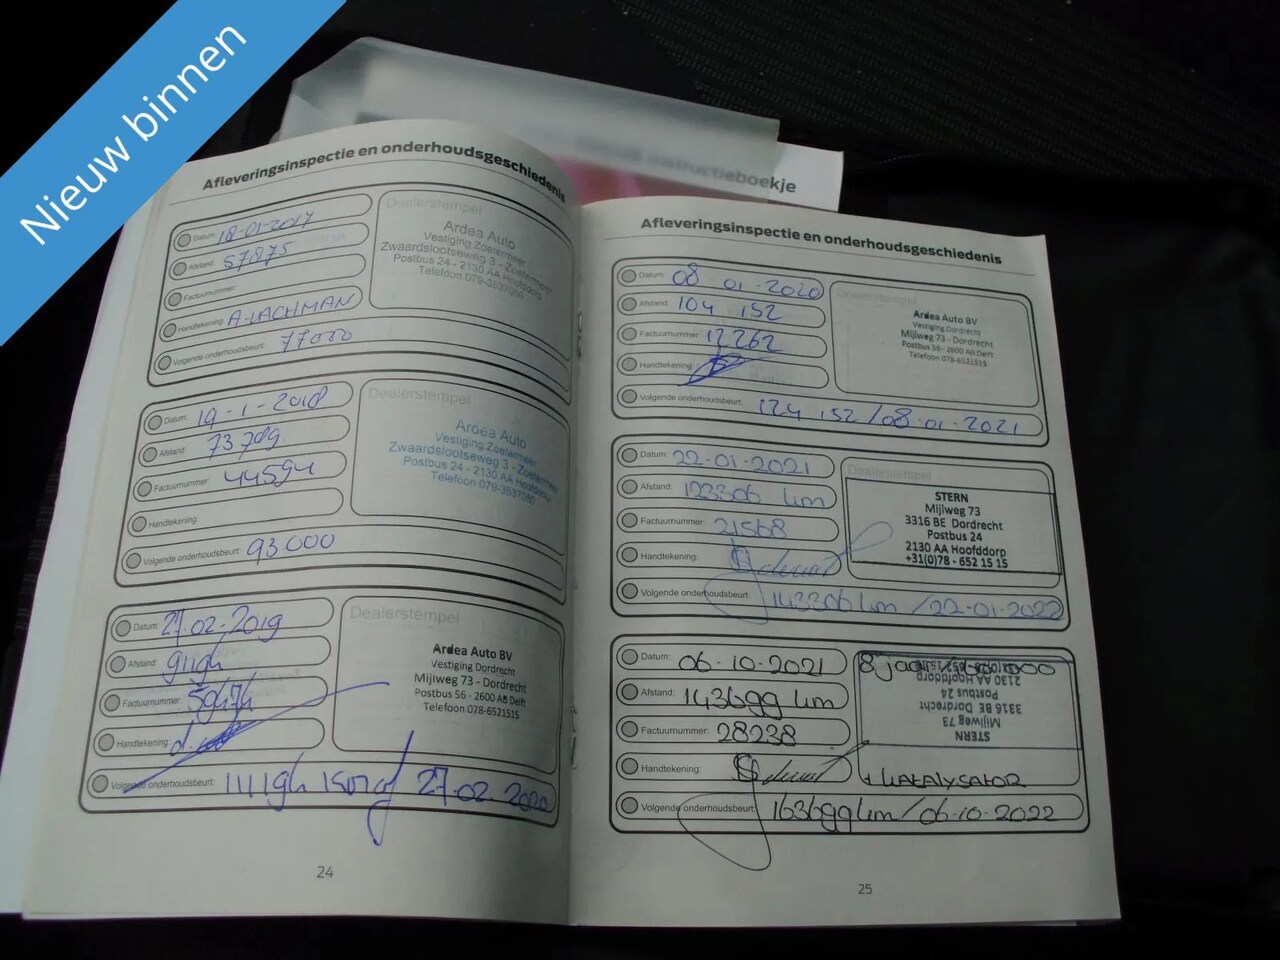 Nieuw binnen
instructieboekje
Afleveringsinspectie en onderhoudsgeschiedenis
Datum: 18-01-2017
Afstand: 57875
Factuurnummer:
Handtekening: A-LACHMAN
Volgende onderhoudsbeurt: 77000
Dealerstempel
Ardea Auto
Vestiging Zoetermeer
Zwaardslootseweg 3 - Zoetermeer
Postbus 24 - 2130 AA Hoofddorp
Telefoon 079-3537050
Datum: 19-1-2018
Afstand: 73789
Factuurnummer: 44594
Handtekening:
Volgende onderhoudsbeurt: 93.000
Dealerstempel
Ardea Auto
Vestiging Zoetermeer
Zwaardslootseweg 3 - Zoetermeer
Postbus 24 - 2130 AA Hoofddorp
Telefoon 079-3537050
Datum: 27.02.2019
Afstand:
Factuurnummer:
Handtekening:
Volgende onderhoudsbeurt: 27.02.2020
Dealerstempel
Ardea Auto BV
Vestiging Dordrecht
Mijlweg 73 - Dordrecht
Postbus 56 - 2600 AB Delft
Telefoon 078-6521515
24
Afleveringsinspectie en onderhoudsgeschiedenis
Datum: 08-01-2020
Afstand: 104 152
Factuurnummer: 12262
Handtekening:
Volgende onderhoudsbeurt: 124 152/08-01-2021
Dealerstempel
Ardea Auto BV
Vestiging Dordrecht
Mijlweg 73 - Dordrecht
Postbus 56 - 2600 AB Delft
Telefoon 078-6521515
Datum: 22-01-2021
Afstand: 123306 km
Factuurnummer: 21568
Handtekening:
Volgende onderhoudsbeurt: 143306 km /22-01-2022
Dealerstempel
STERN
Mijlweg 73
3316 BE Dordrecht
Postbus 24
2130 AA Hoofddorp
+31(0)78 - 652 15 15
Datum: 06-10-2021
Afstand: 143699 km
Factuurnummer: 28238
Handtekening:
Volgende onderhoudsbeurt: 163699 km/06-10-2022
8 jaar
2130 AA Hoofddorp
Postbus 24
3316 BE Dordrecht
Mijlweg 73
STERN
+ KATALYSATOR
25